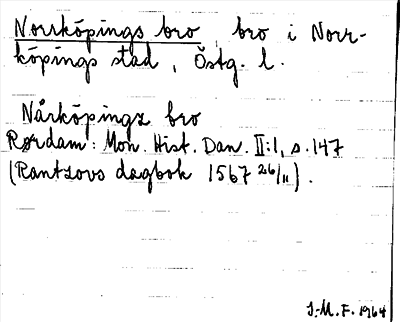 Norrköpings bro, bro i Norr-
köpings stad, Östg. l.
Nårköpingz bro
Rørdam: Mon. Hist. Dan. II:1, s. 147
(Rantzovs dagbok 1567 26/11).
J.-M. F. 1964